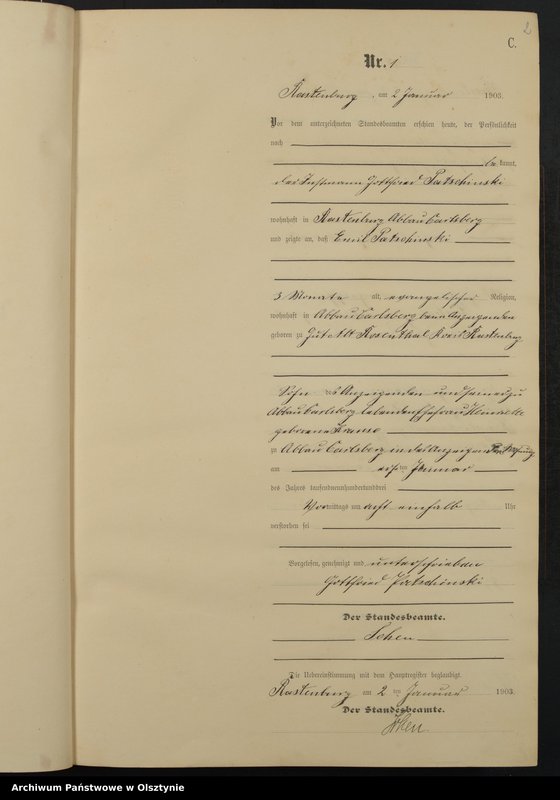 2
C.
Nr. 1
Rastenburg, am 2 Januar 1903.
Vor dem unterzeichneten Standesbeamten erschien heute, der Persönlichkeit
nach
be kannt,
der Instmann Gottfried Patschinski
wohnhaft in Rastenburg Abbau Carlsberg
und zeigte an, daß Emil Patschinski
3 Monate alt, evangelischer Religion,
wohnhaft in Abbau Carlsberg beim Anzeigenden
geboren zu Gut Alt Rosenthal Kreis Rastenburg
Sohn des Anzeigenden und seiner zu
Abbau Carlsberg lebenden Ehefrau Henriette
geborene Krause
zu Abbau Carlsberg in des Anzeigenden Wohnung
am ersten Januar
des Jahres tausendneunhundertunddrei
Vormittags um acht einhalb Uhr
verstorben sei
Vorgelesen, genehmigt und unterschrieben
Gottfried Patschinski
Der Standesbeamte.
Die Uebereinstimmung mit dem Hauptregister beglaubigt.
Rastenburg am 2 ten Januar 1903.
Der Standesbeamte.
Archiwum Państwowe w Olsztynie